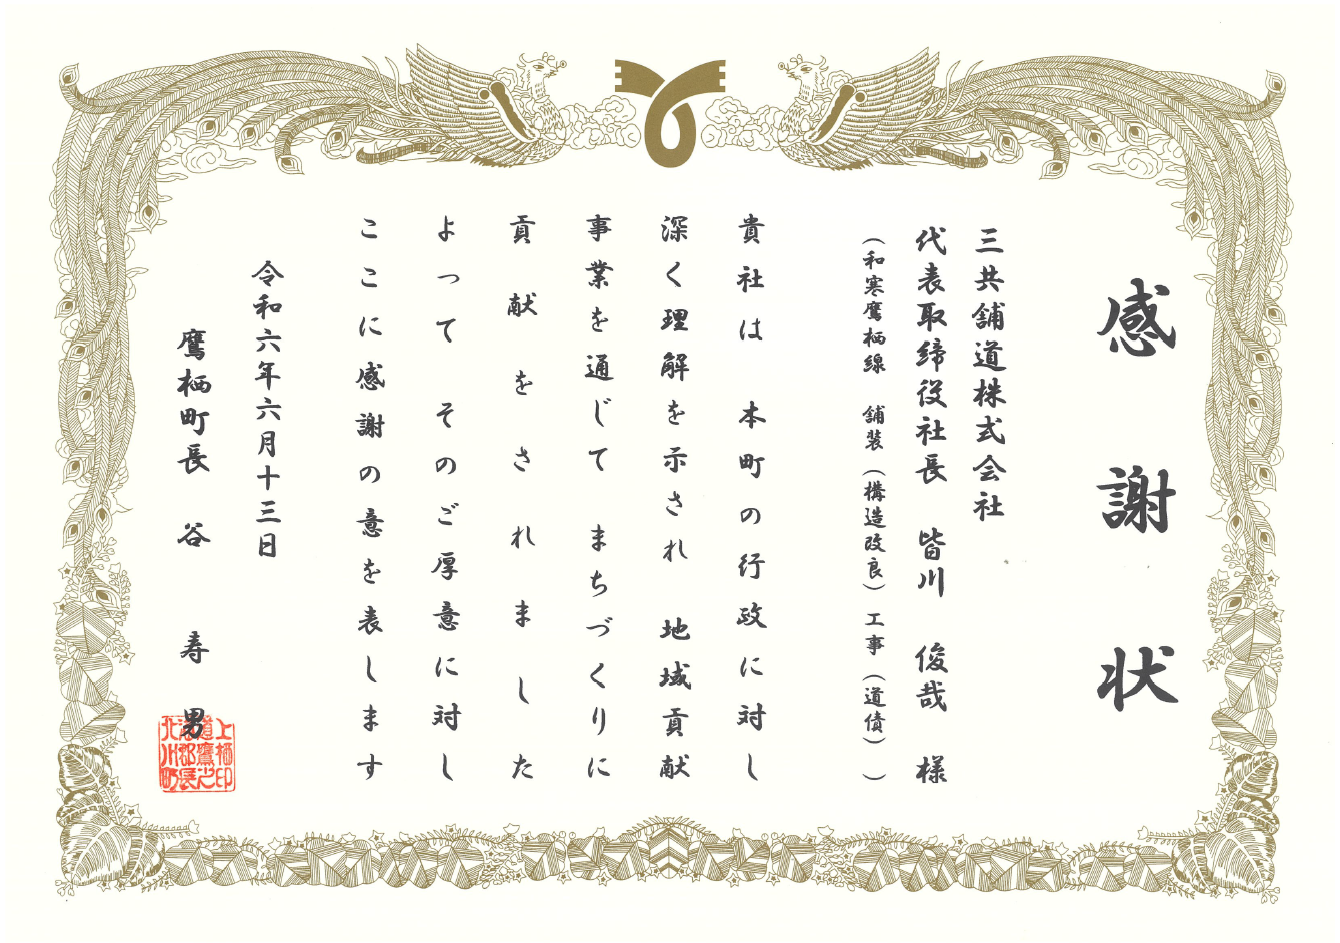 感謝状
三共舗道株式会社
代表取締役社長 皆川 俊哉 様
（和寒鷹栖線 舗装（構造改良）工事（道債））
貴社は 本町の行政に対し
深く理解を示され 地域貢献
事業を通じて まちづくりに
貢献をされました
よって そのご厚意に対し
ここに感謝の意を表します
令和六年六月十三日
鷹栖町長 谷 寿男
上栖印
道鷹之
海郡長
北川町